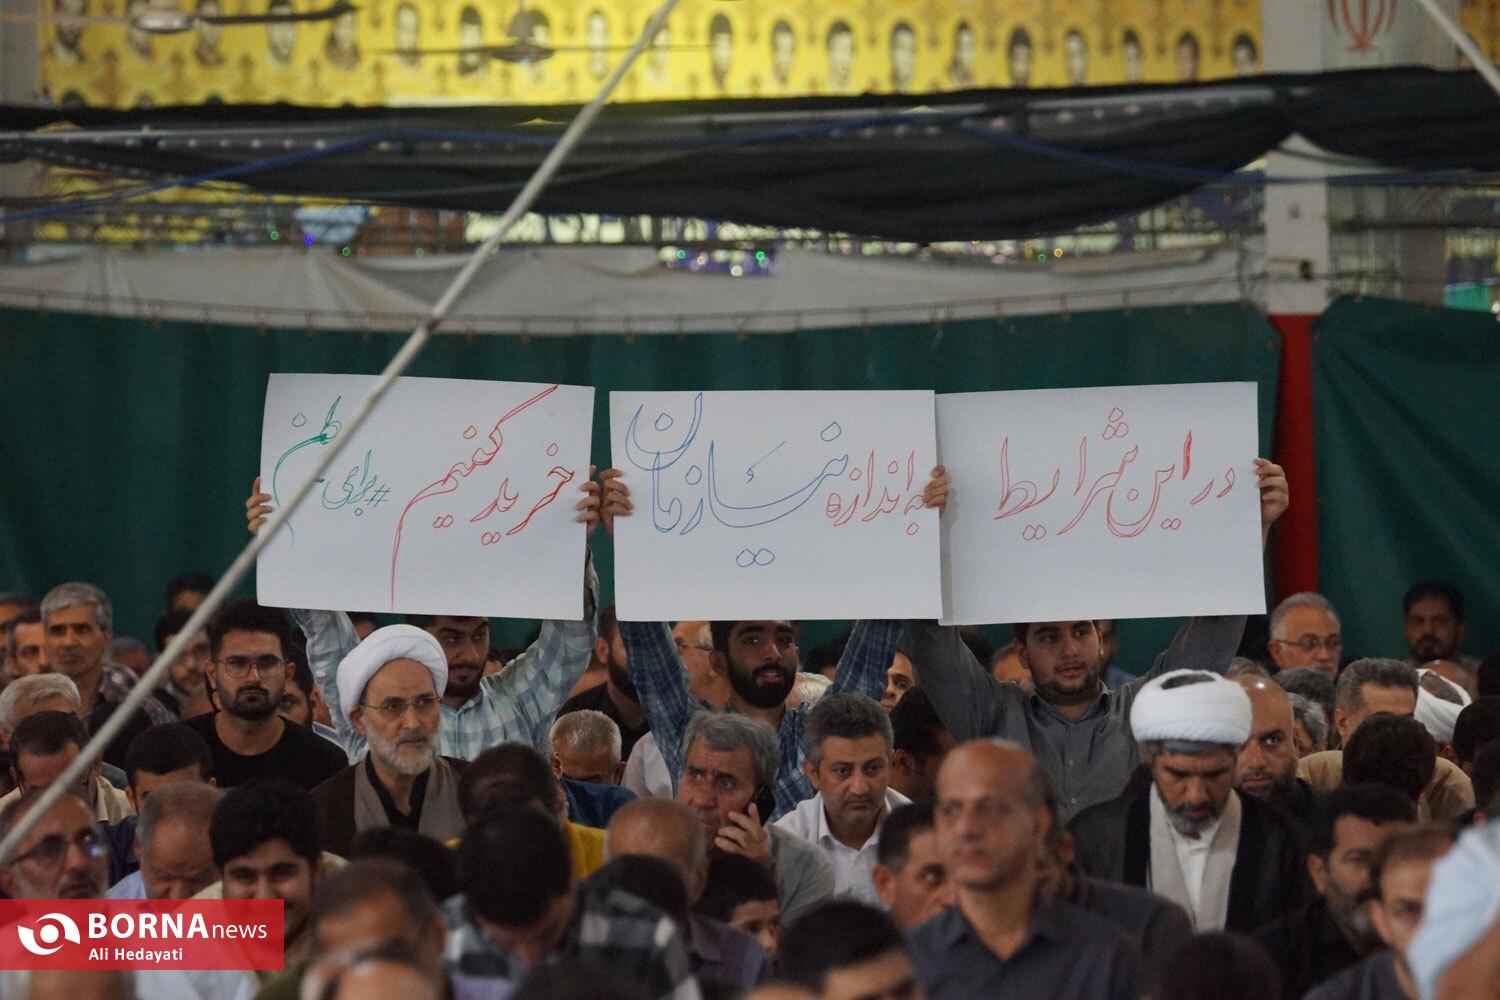 در این شرایط
به اندازه نیازمان
خرید کنیم
#برای_وطن
BORNAnews
Ali Hedayati